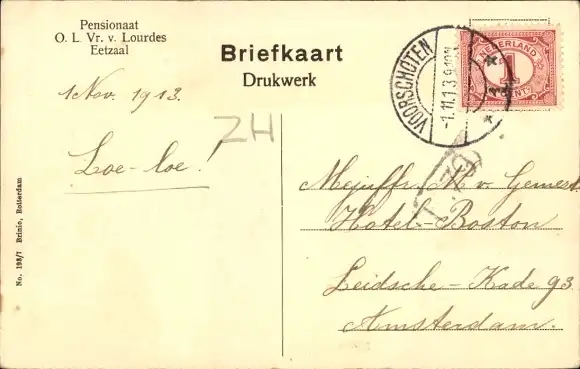 Pensionaat
O. L. Vr. v. Lourdes
Eetzaal
Briefkaart
Drukwerk
VOORSCHOTEN
-1.11.13.9-10V
NEDERLAND
1
CENT
1 Nov. 1913.
ZH
Loe-loe!
Mejuffr. M. v. Gemert
Hotel-Boston
Leidsche-Kade 93
Amsterdam.
No. 198/7 Brinio, Rotterdam